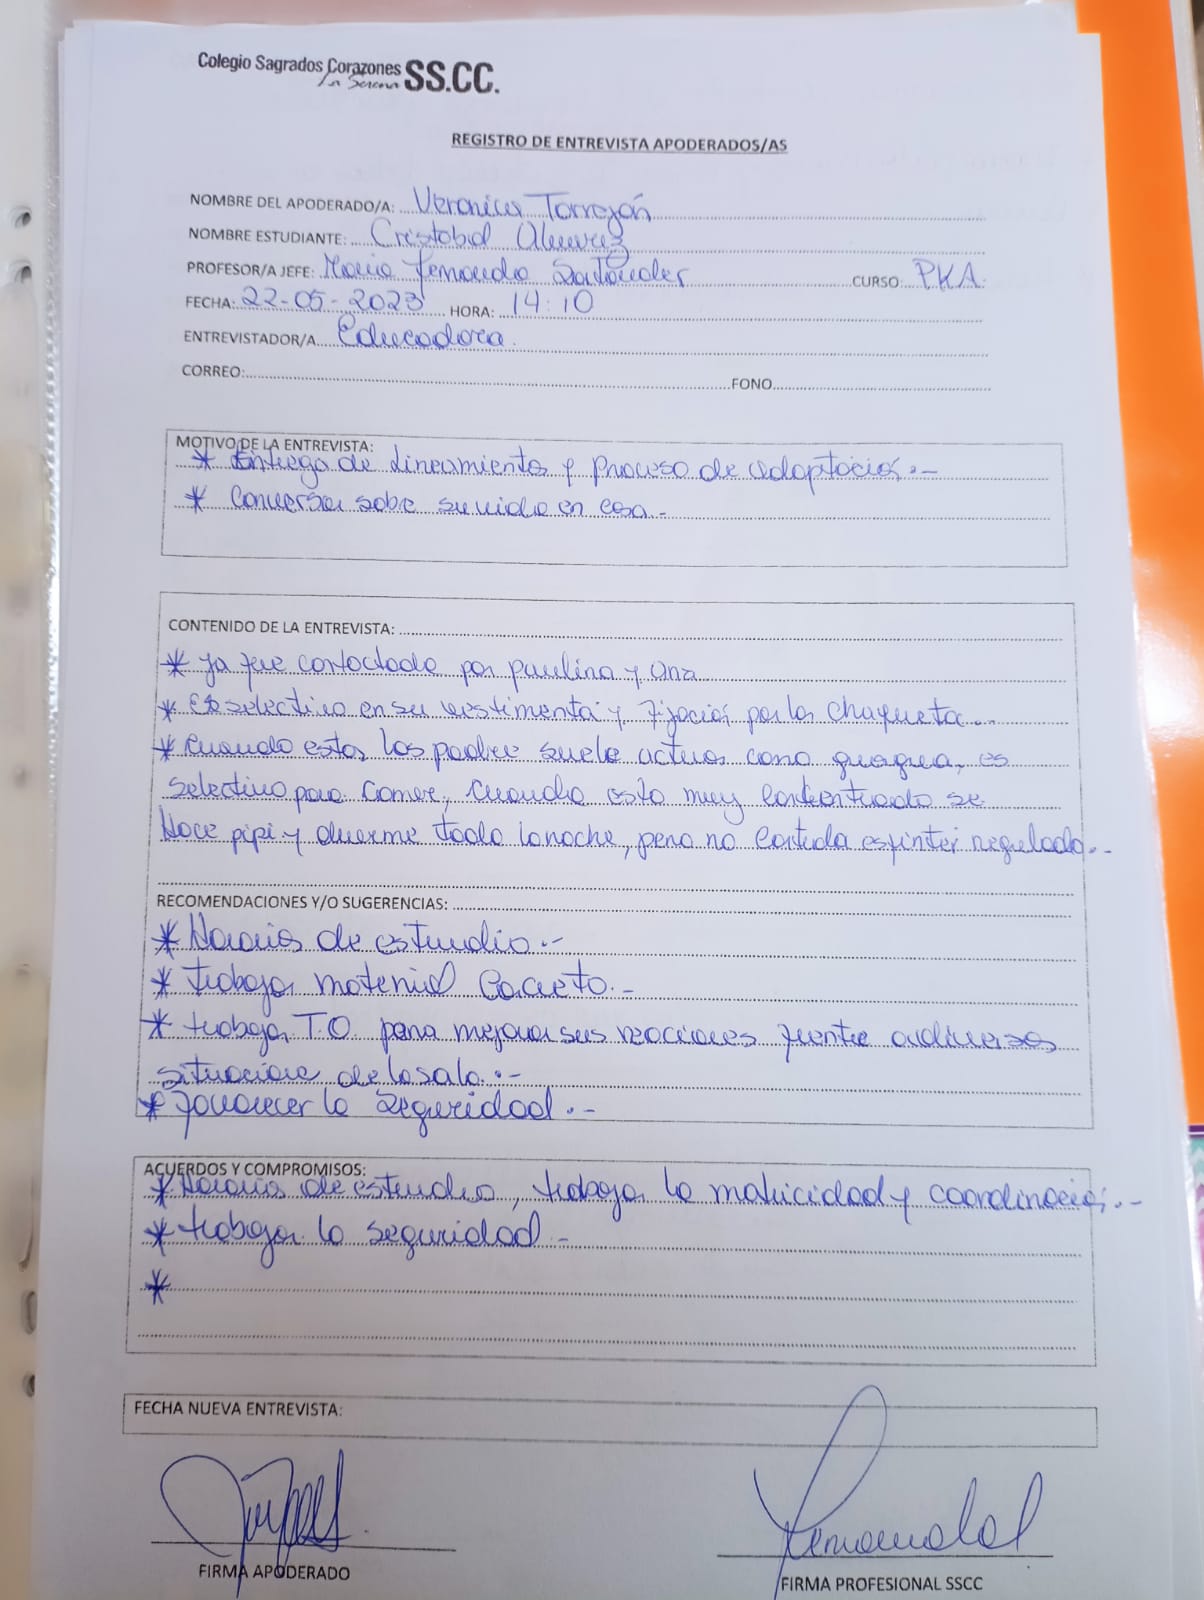 Colegio Sagrados Corazones SS.CC.
La Serena
REGISTRO DE ENTREVISTA APODERADOS/AS
NOMBRE DEL APODERADO/A: Veronica Torrejón
NOMBRE ESTUDIANTE: Cristobal Alvarez
PROFESOR/A JEFE: Maria Fernanda Santander CURSO: PKA.
FECHA: 22-05-2023 HORA: 14:10
ENTREVISTADOR/A Educadora.
CORREO: FONO
MOTIVO DE LA ENTREVISTA:
* Entrega de Lineamiento y proceso de adaptación.-
* Conversar sobre su vida en casa.-
CONTENIDO DE LA ENTREVISTA:
* ya fue contactado por paulina y
* Es selectivo en su vestimenta y fijación por la chaqueta.-
* Cuando estan los padre suele actuar como guagua, es
selectivo para comer, cuando esta muy concentrado se
Hace pipi y duerme toda la noche, pero no esfinter regulado.-
RECOMENDACIONES Y/O SUGERENCIAS:
* Horario de estudio.-
* trabajar material Concreto.-
* trabajar T.O. para mejorar sus reacciones frente a diversas
situacione de la sala.-
* Favorecer la seguridad.-
ACUERDOS Y COMPROMISOS:
* Horario de estudio, trabajar la motricidad y coordinación.-
* trabajar la seguridad.-
*
FECHA NUEVA ENTREVISTA:
FIRMA APODERADO
FIRMA PROFESIONAL SSCC